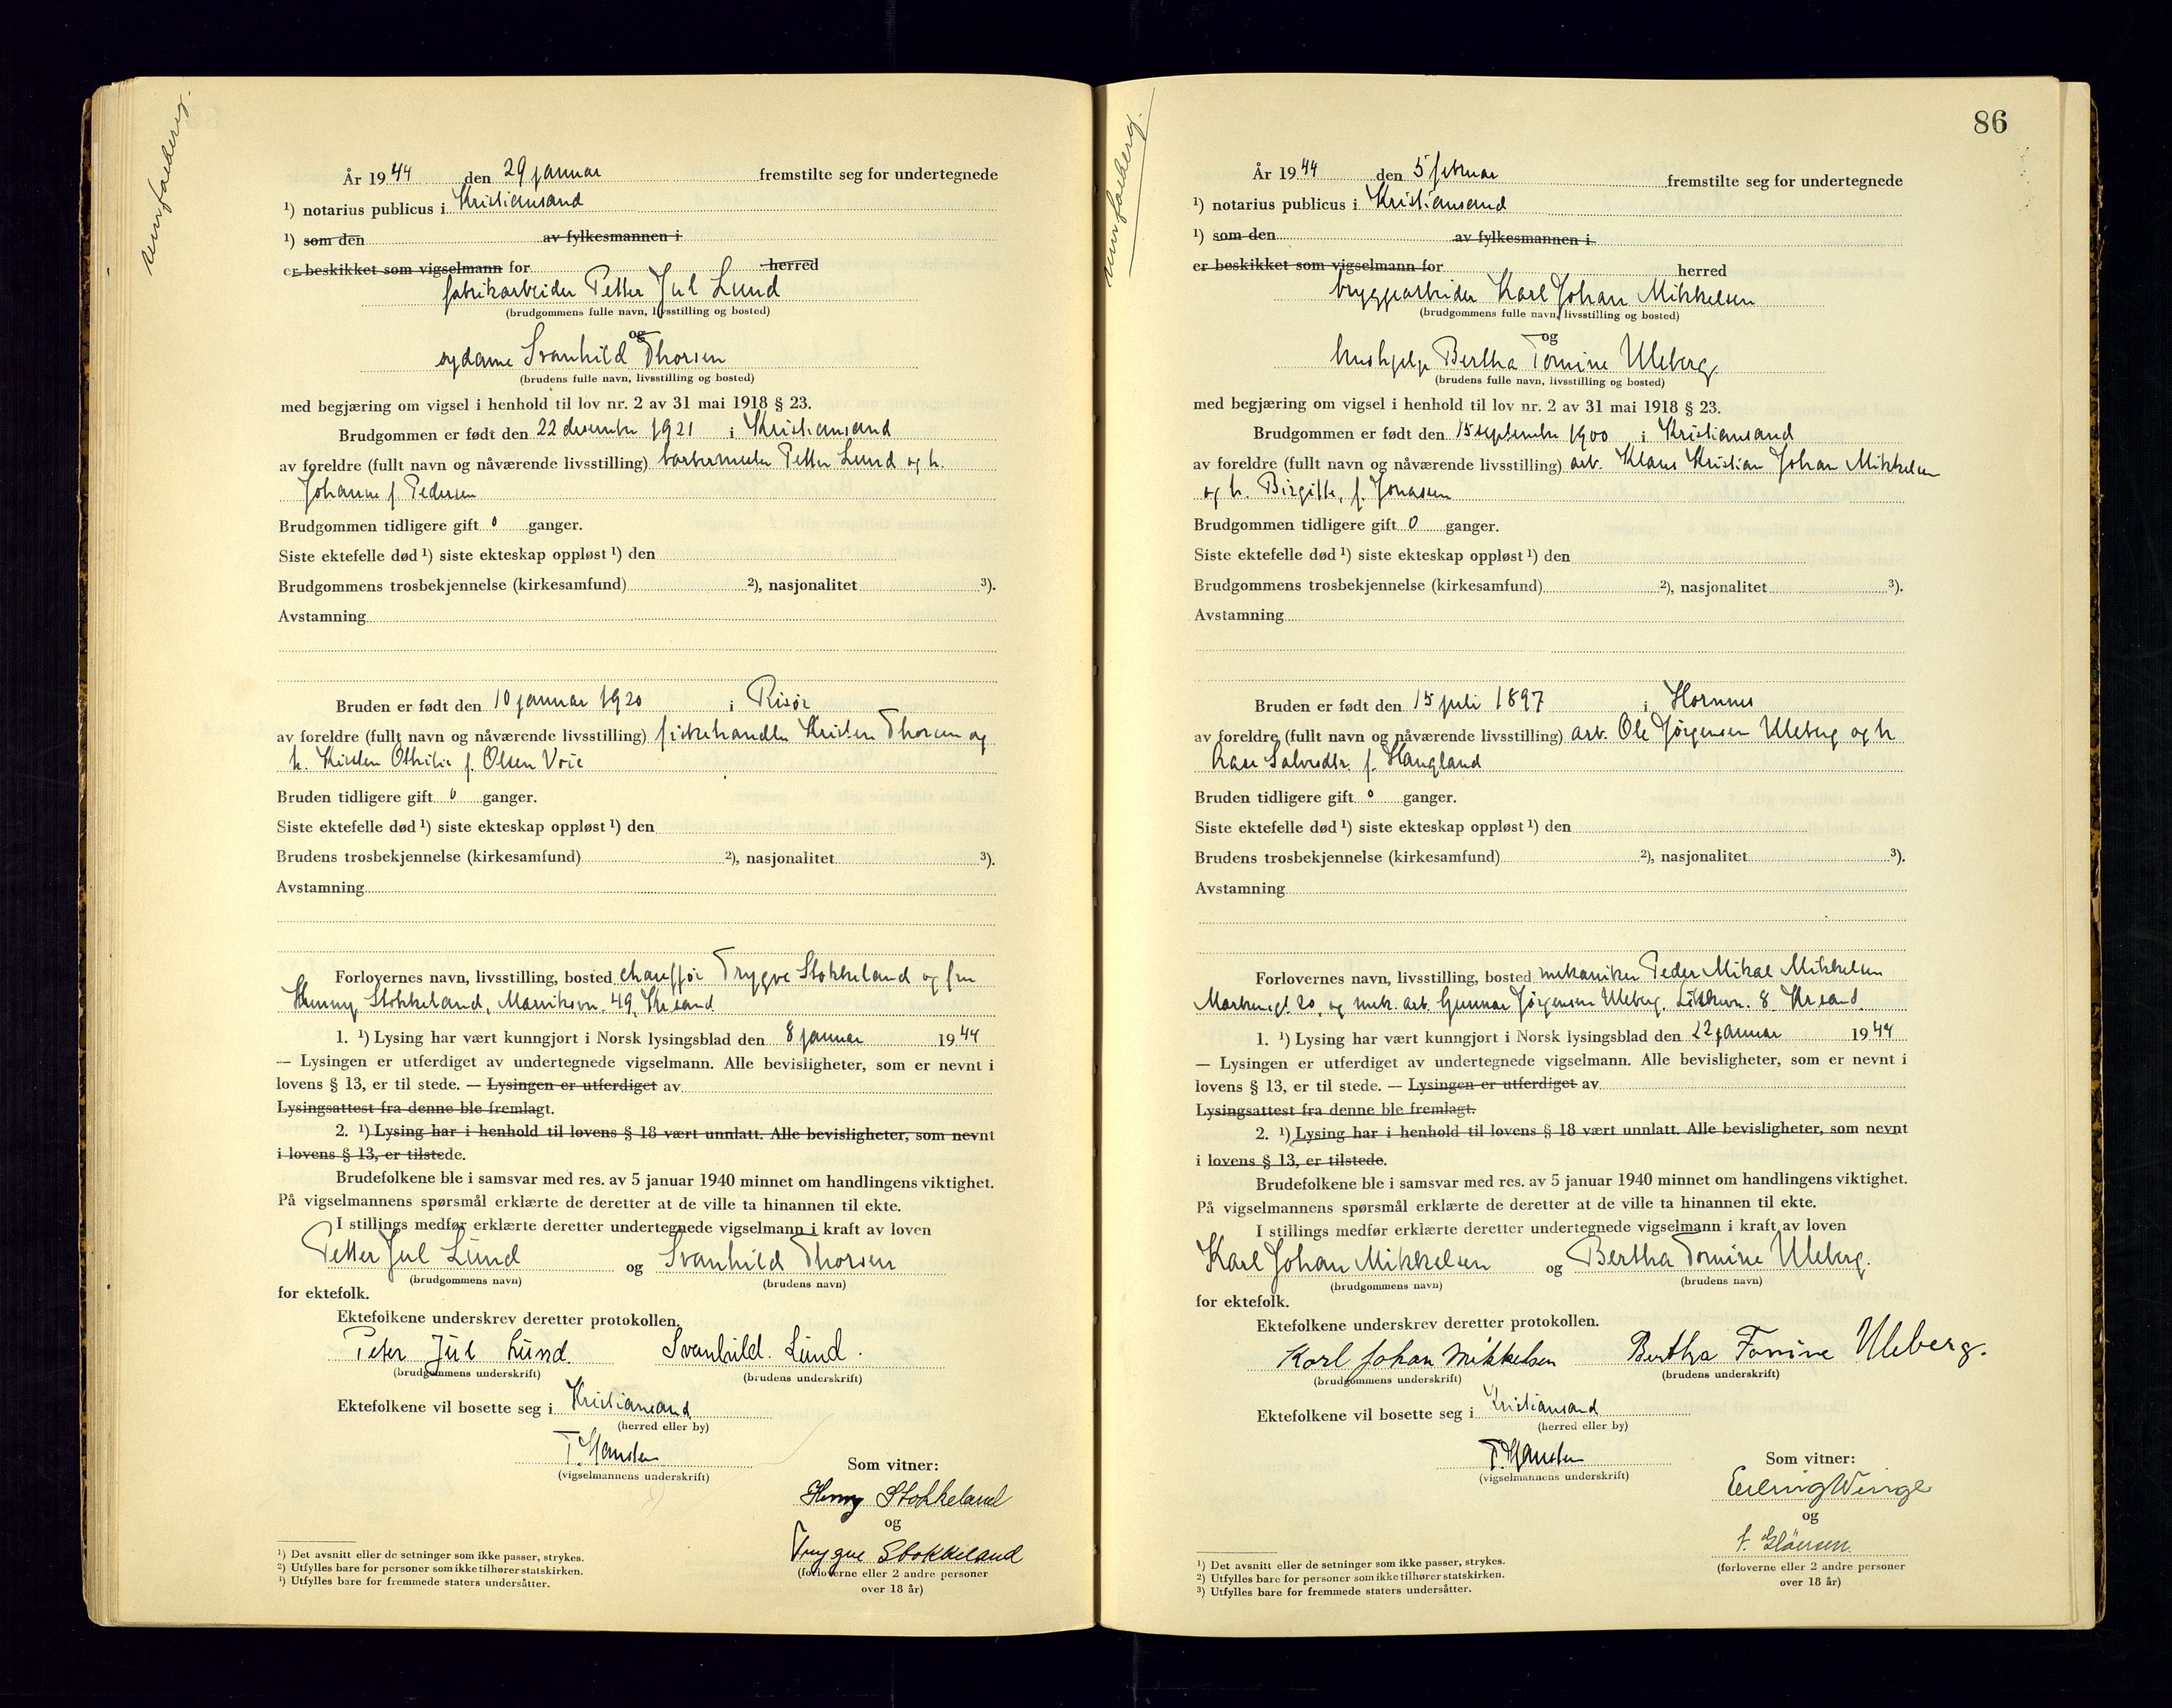 År 1944 den 29 januar fremstilte seg for undertegnede
¹) notarius publicus i Kristiansand
¹) som den av fylkesmannen i
er beskikket som vigselmann for herred
fabrikarbeider Petter Jul Lund
(brudgommens fulle navn, livsstilling og bosted)
og
sydame Svanhild Thorsen
(brudens fulle navn, livsstilling og bosted)
med begjæring om vigsel i henhold til lov nr. 2 av 31 mai 1918 § 23.
Brudgommen er født den 22 desember 1921 i Kristiansand
av foreldre (fullt navn og nåværende livsstilling) barbermester Petter Lund og h.
Johanne f. Pedersen
Brudgommen tidligere gift 0 ganger.
Siste ektefelle død ¹) siste ekteskap oppløst ¹) den
Brudgommens trosbekjennelse (kirkesamfund) ²), nasjonalitet ³).
Avstamning
Bruden er født den 10 januar 1920 i Risør
av foreldre (fullt navn og nåværende livsstilling) fiskehandler Kristen Thorsen og
h. Kirsten Othilie f. Olsen Voie
Bruden tidligere gift 0 ganger.
Siste ektefelle død ¹) siste ekteskap oppløst ¹) den
Brudens trosbekjennelse (kirkesamfund) ²), nasjonalitet ³).
Avstamning
Forlovernes navn, livsstilling, bosted chauffør Trygve Stokkeland og fru
Henny Stokkeland, 49, Kr.sand
1. ¹) Lysing har vært kunngjort i Norsk lysingsblad den 8 januar 1944
— Lysingen er utferdiget av undertegnede vigselmann. Alle bevisligheter, som er nevnt i
lovens § 13, er til stede. — Lysingen er utferdiget av
Lysingsattest fra denne ble fremlagt.
2. ¹) Lysing har i henhold til lovens § 18 vært unnlatt. Alle bevisligheter, som nevnt
i lovens § 13, er tilstede.
Brudefolkene ble i samsvar med res. av 5 januar 1940 minnet om handlingens viktighet.
På vigselmannens spørsmål erklærte de deretter at de ville ta hinannen til ekte.
I stillings medfør erklærte deretter undertegnede vigselmann i kraft av loven
Petter Jul Lund og Svanhild Thorsen
(brudgommens navn) (brudens navn)
for ektefolk.
Ektefolkene underskrev deretter protokollen.
Peter Jul Lund. Svanhild. Lund.
(brudgommens underskrift) (brudens underskrift)
Ektefolkene vil bosette seg i Kristiansand
(herred eller by)
T. Hansen
(vigselmannens underskrift)
Som vitner:
Henny Stokkeland
og
Trygve Stokkeland
(forloverne eller 2 andre personer
over 18 år)
¹) Det avsnitt eller de setninger som ikke passer, strykes.
²) Utfylles bare for personer som ikke tilhører statskirken.
³) Utfylles bare for fremmede staters undersåtter.
86
År 1944 den 5 februar fremstilte seg for undertegnede
¹) notarius publicus i Kristiansand
¹) som den av fylkesmannen i
er beskikket som vigselmann for herred
bryggearbeider Karl Johan Mikkelsen
(brudgommens fulle navn, livsstilling og bosted)
og
hushjelp Bertha Tomine Uleberg.
(brudens fulle navn, livsstilling og bosted)
med begjæring om vigsel i henhold til lov nr. 2 av 31 mai 1918 § 23.
Brudgommen er født den 15 september 1900 i Kristiansand
av foreldre (fullt navn og nåværende livsstilling) arb. Klaus Kristian Johan Mikkelsen
og h. Birgitte, f. Jonassen
Brudgommen tidligere gift 0 ganger.
Siste ektefelle død ¹) siste ekteskap oppløst ¹) den
Brudgommens trosbekjennelse (kirkesamfund) ²), nasjonalitet ³).
Avstamning
Bruden er født den 15 juli 1897 i Hornnes
av foreldre (fullt navn og nåværende livsstilling) arb. Ole Jørgensen Uleberg og h
Aase Salvesdtr. f. Haugland
Bruden tidligere gift 0 ganger.
Siste ektefelle død ¹) siste ekteskap oppløst ¹) den
Brudens trosbekjennelse (kirkesamfund) ²), nasjonalitet ³).
Avstamning
Forlovernes navn, livsstilling, bosted mekaniker Peder Mikal Mikkelsen
Markensgt. 20, og mek. arb. Gunnar Jørgensen Uleberg, 8 Kr.sand
1. ¹) Lysing har vært kunngjort i Norsk lysingsblad den 22 januar 1944
— Lysingen er utferdiget av undertegnede vigselmann. Alle bevisligheter, som er nevnt i
lovens § 13, er til stede. — Lysingen er utferdiget av
Lysingsattest fra denne ble fremlagt.
2. ¹) Lysing har i henhold til lovens § 18 vært unnlatt. Alle bevisligheter, som nevnt
i lovens § 13, er tilstede.
Brudefolkene ble i samsvar med res. av 5 januar 1940 minnet om handlingens viktighet.
På vigselmannens spørsmål erklærte de deretter at de ville ta hinannen til ekte.
I stillings medfør erklærte deretter undertegnede vigselmann i kraft av loven
Karl Johan Mikkelsen og Bertha Tomine Uleberg.
(brudgommens navn) (brudens navn)
for ektefolk.
Ektefolkene underskrev deretter protokollen.
Karl Johan Mikkelsen Bertha Tomine Uleberg.
(brudgommens underskrift) (brudens underskrift)
Ektefolkene vil bosette seg i Kristiansand
(herred eller by)
T. Hansen
(vigselmannens underskrift)
Som vitner:
Erling Winge
og
(forloverne eller 2 andre personer
over 18 år)
¹) Det avsnitt eller de setninger som ikke passer, strykes.
²) Utfylles bare for personer som ikke tilhører statskirken.
³) Utfylles bare for fremmede staters undersåtter.